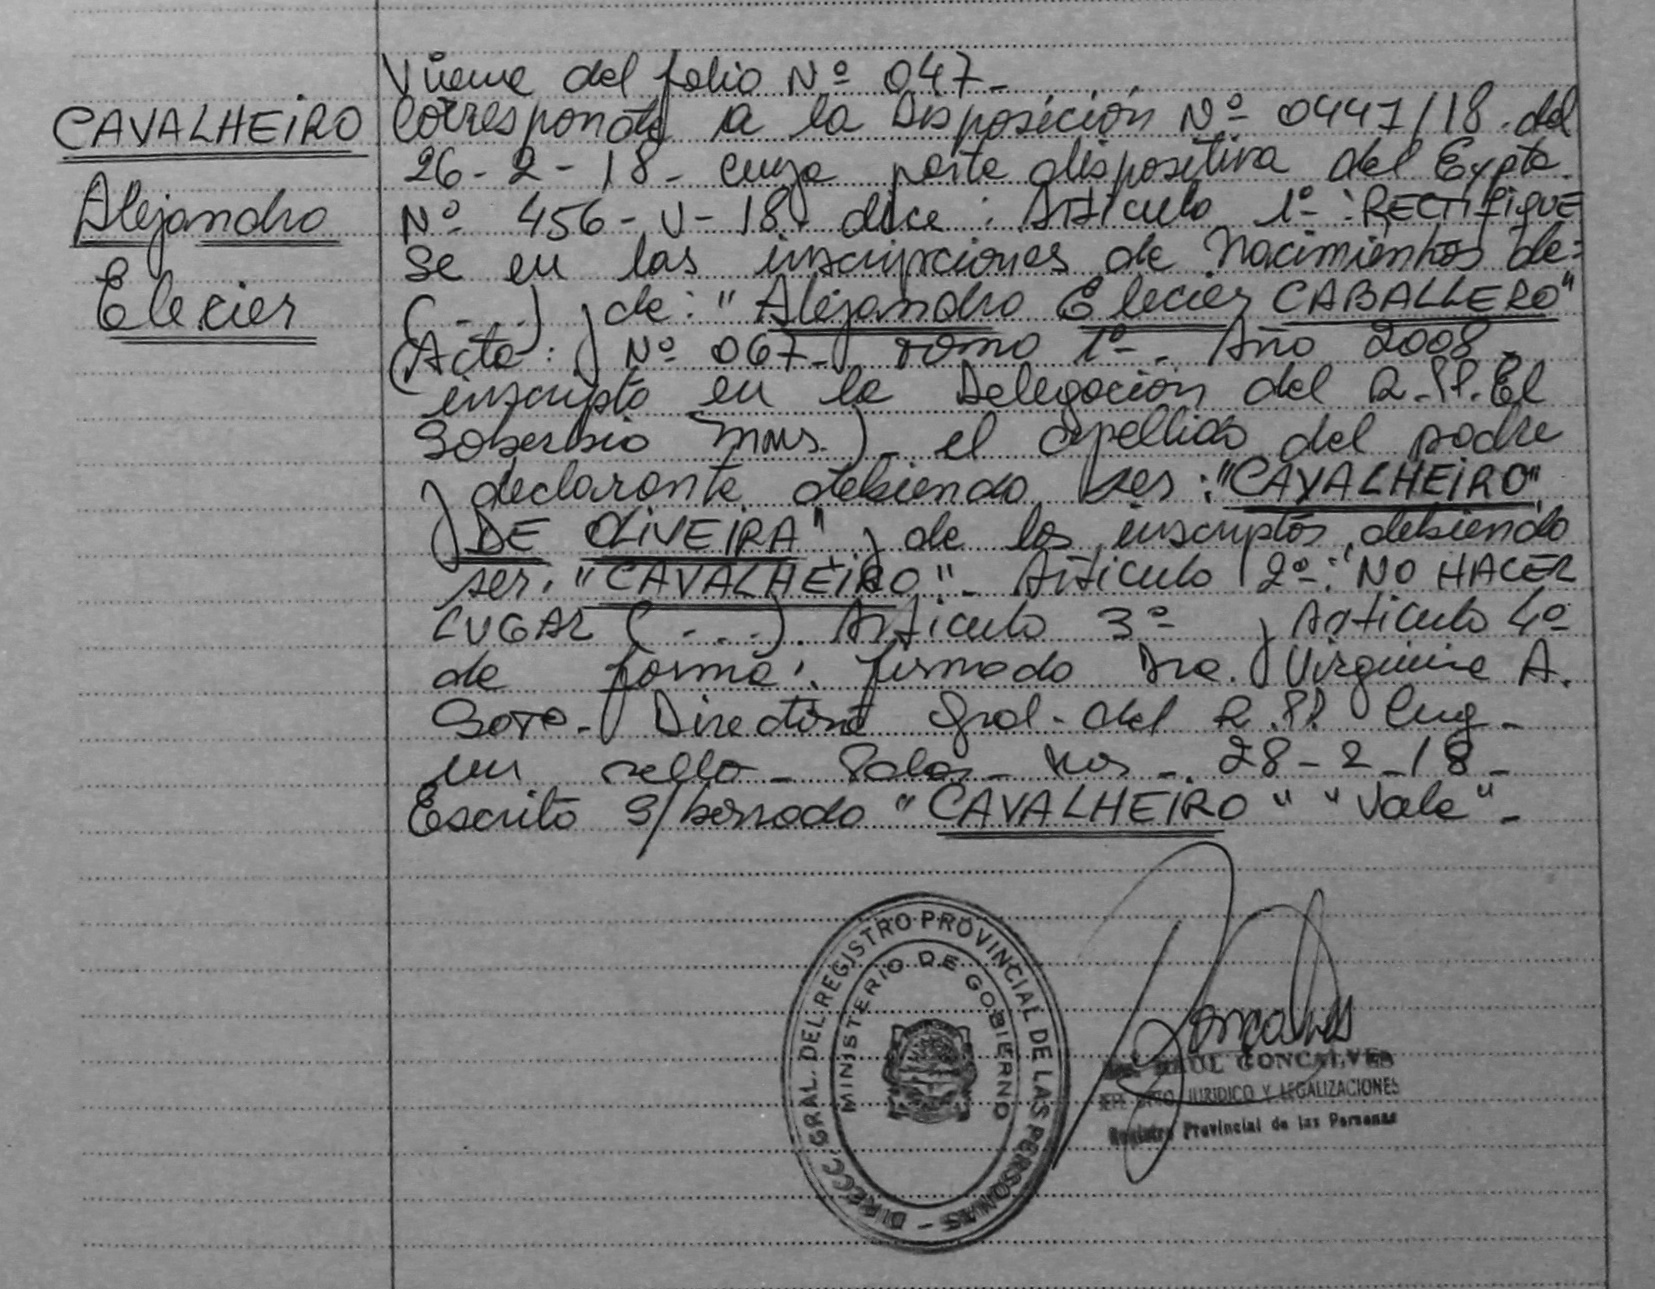 CAVALHEIRO
Alejandro
Elecier
Viene del folio Nº 047-
Corresponde a la Disposición Nº 0447/18 del
26-2-18- cuya parte dispositiva del Expte.
Nº 456-V-18 dice: Artículo 1º: RECTIFIQUE
Se en las inscripciones de Nacimientos de:
(....) y de: "Alejandro Elecier CABALLERO"
(Acta: Nº 067- Tomo 1º-. Año 2008-
inscripto en la Delegación del R.PP. El
Soberbio Mnes.)- el apellido del padre
y declarante debiendo ser: "CAVALHEIRO
DE OLIVEIRA" y de los inscriptos debiendo
ser: "CAVALHEIRO"- Artículo 2º: NO HACER
LUGAR (....). Artículo 3º y Artículo 4º
de forma: firmado Dra. Virginia A.
Soto- Directora Gral. del R.PP. Hay
un sello- Posadas- Mnes-. 28-2-18-
Escrito S/borrado "CAVALHEIRO" "Vale"-
DIRECC. GRAL. DEL REGISTRO PROVINCIAL DE LAS PERSONAS -
MINISTERIO DE GOBIERNO
RAUL GONCALVES
JEFE DPTO. JURIDICO Y LEGALIZACIONES
Registro Provincial de las Personas